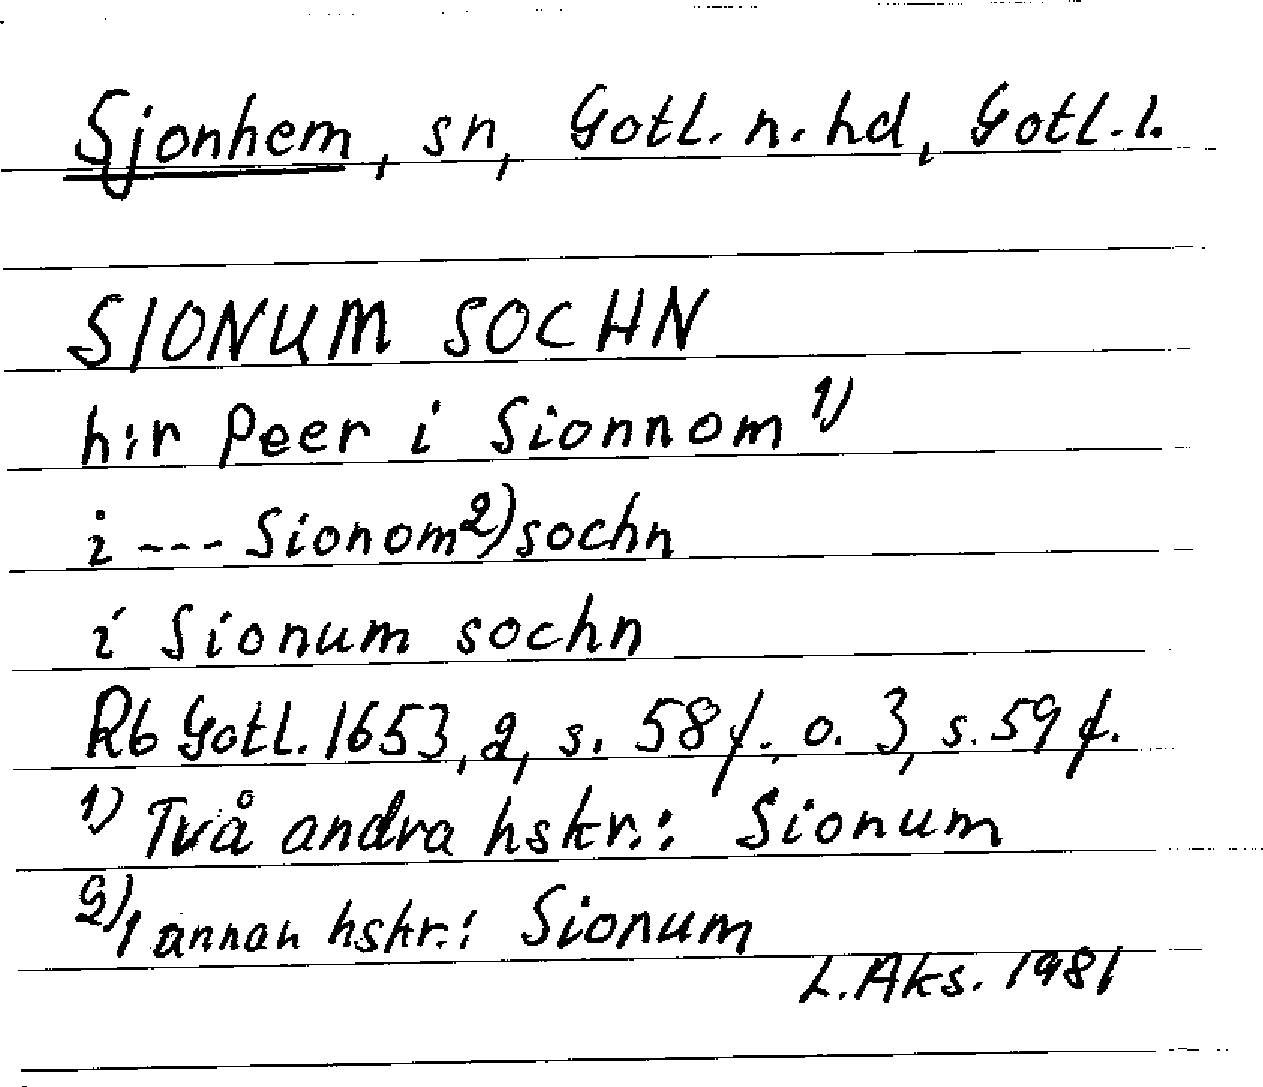 Sjonhem, sn, Gotl. n. hd, Gotl. l.
SIONUM SOCHN
h:r Peer i Sionnom 1)
i --- Sionom 2) sochn
i Sionum sochn
Rb Gotl. 1653, 2, s. 58 f. o. 3, s. 59 f.
1) Två andra hskr.: Sionum
2) 1 annan hskr.: Sionum
L. Aks. 1981